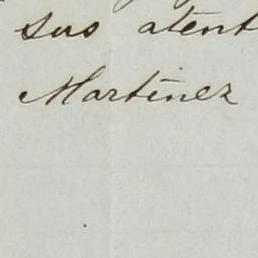 sus atent
Martinez